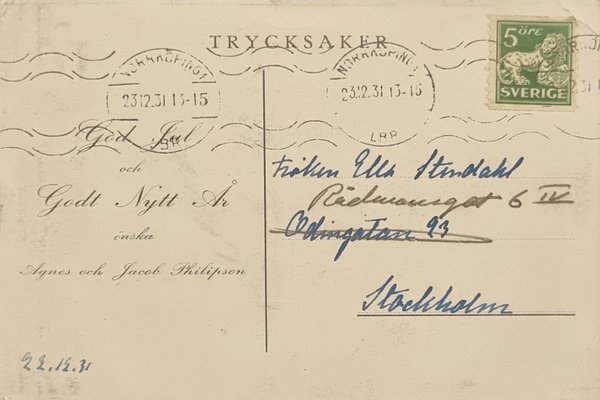 TRYCKSAKER
NORRKÖPING 1
23.12.31 13-15
LBR
NORRKÖPING 1
23.12.31 13-15
LBR
5 ÖRE
SVERIGE
God Jul
och
Godt Nytt År
önska
Agnes och Jacob Philipson
22.12.31
Fröken Ella Stendahl
Rådmansgat 6 IV
Odingatan 93
Stockholm